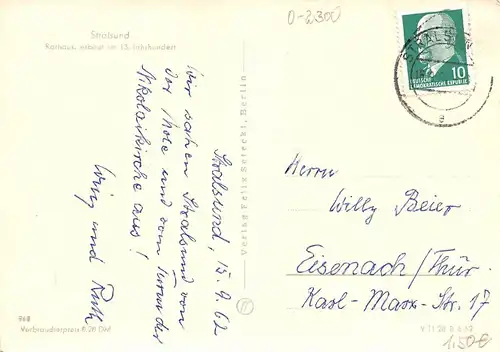 Stralsund
Rathaus, erbaut im 13. Jahrhundert
0-2300
STRALSUND
10
DEUTSCHE
DEMOKRATISCHE REPUBLIK
Stralsund, 15. 9. 62
Wir sahen Stralsund von
der Mole und vom Turm der
Nikolaikirche aus!
und Ruth
Verlag Felix Setecki, Berlin
Herrn
Willy Beier
Eisenach/Thür.
Karl-Marx-Str. 17
768
Verbraucherpreis 0,20 DM
1,50€